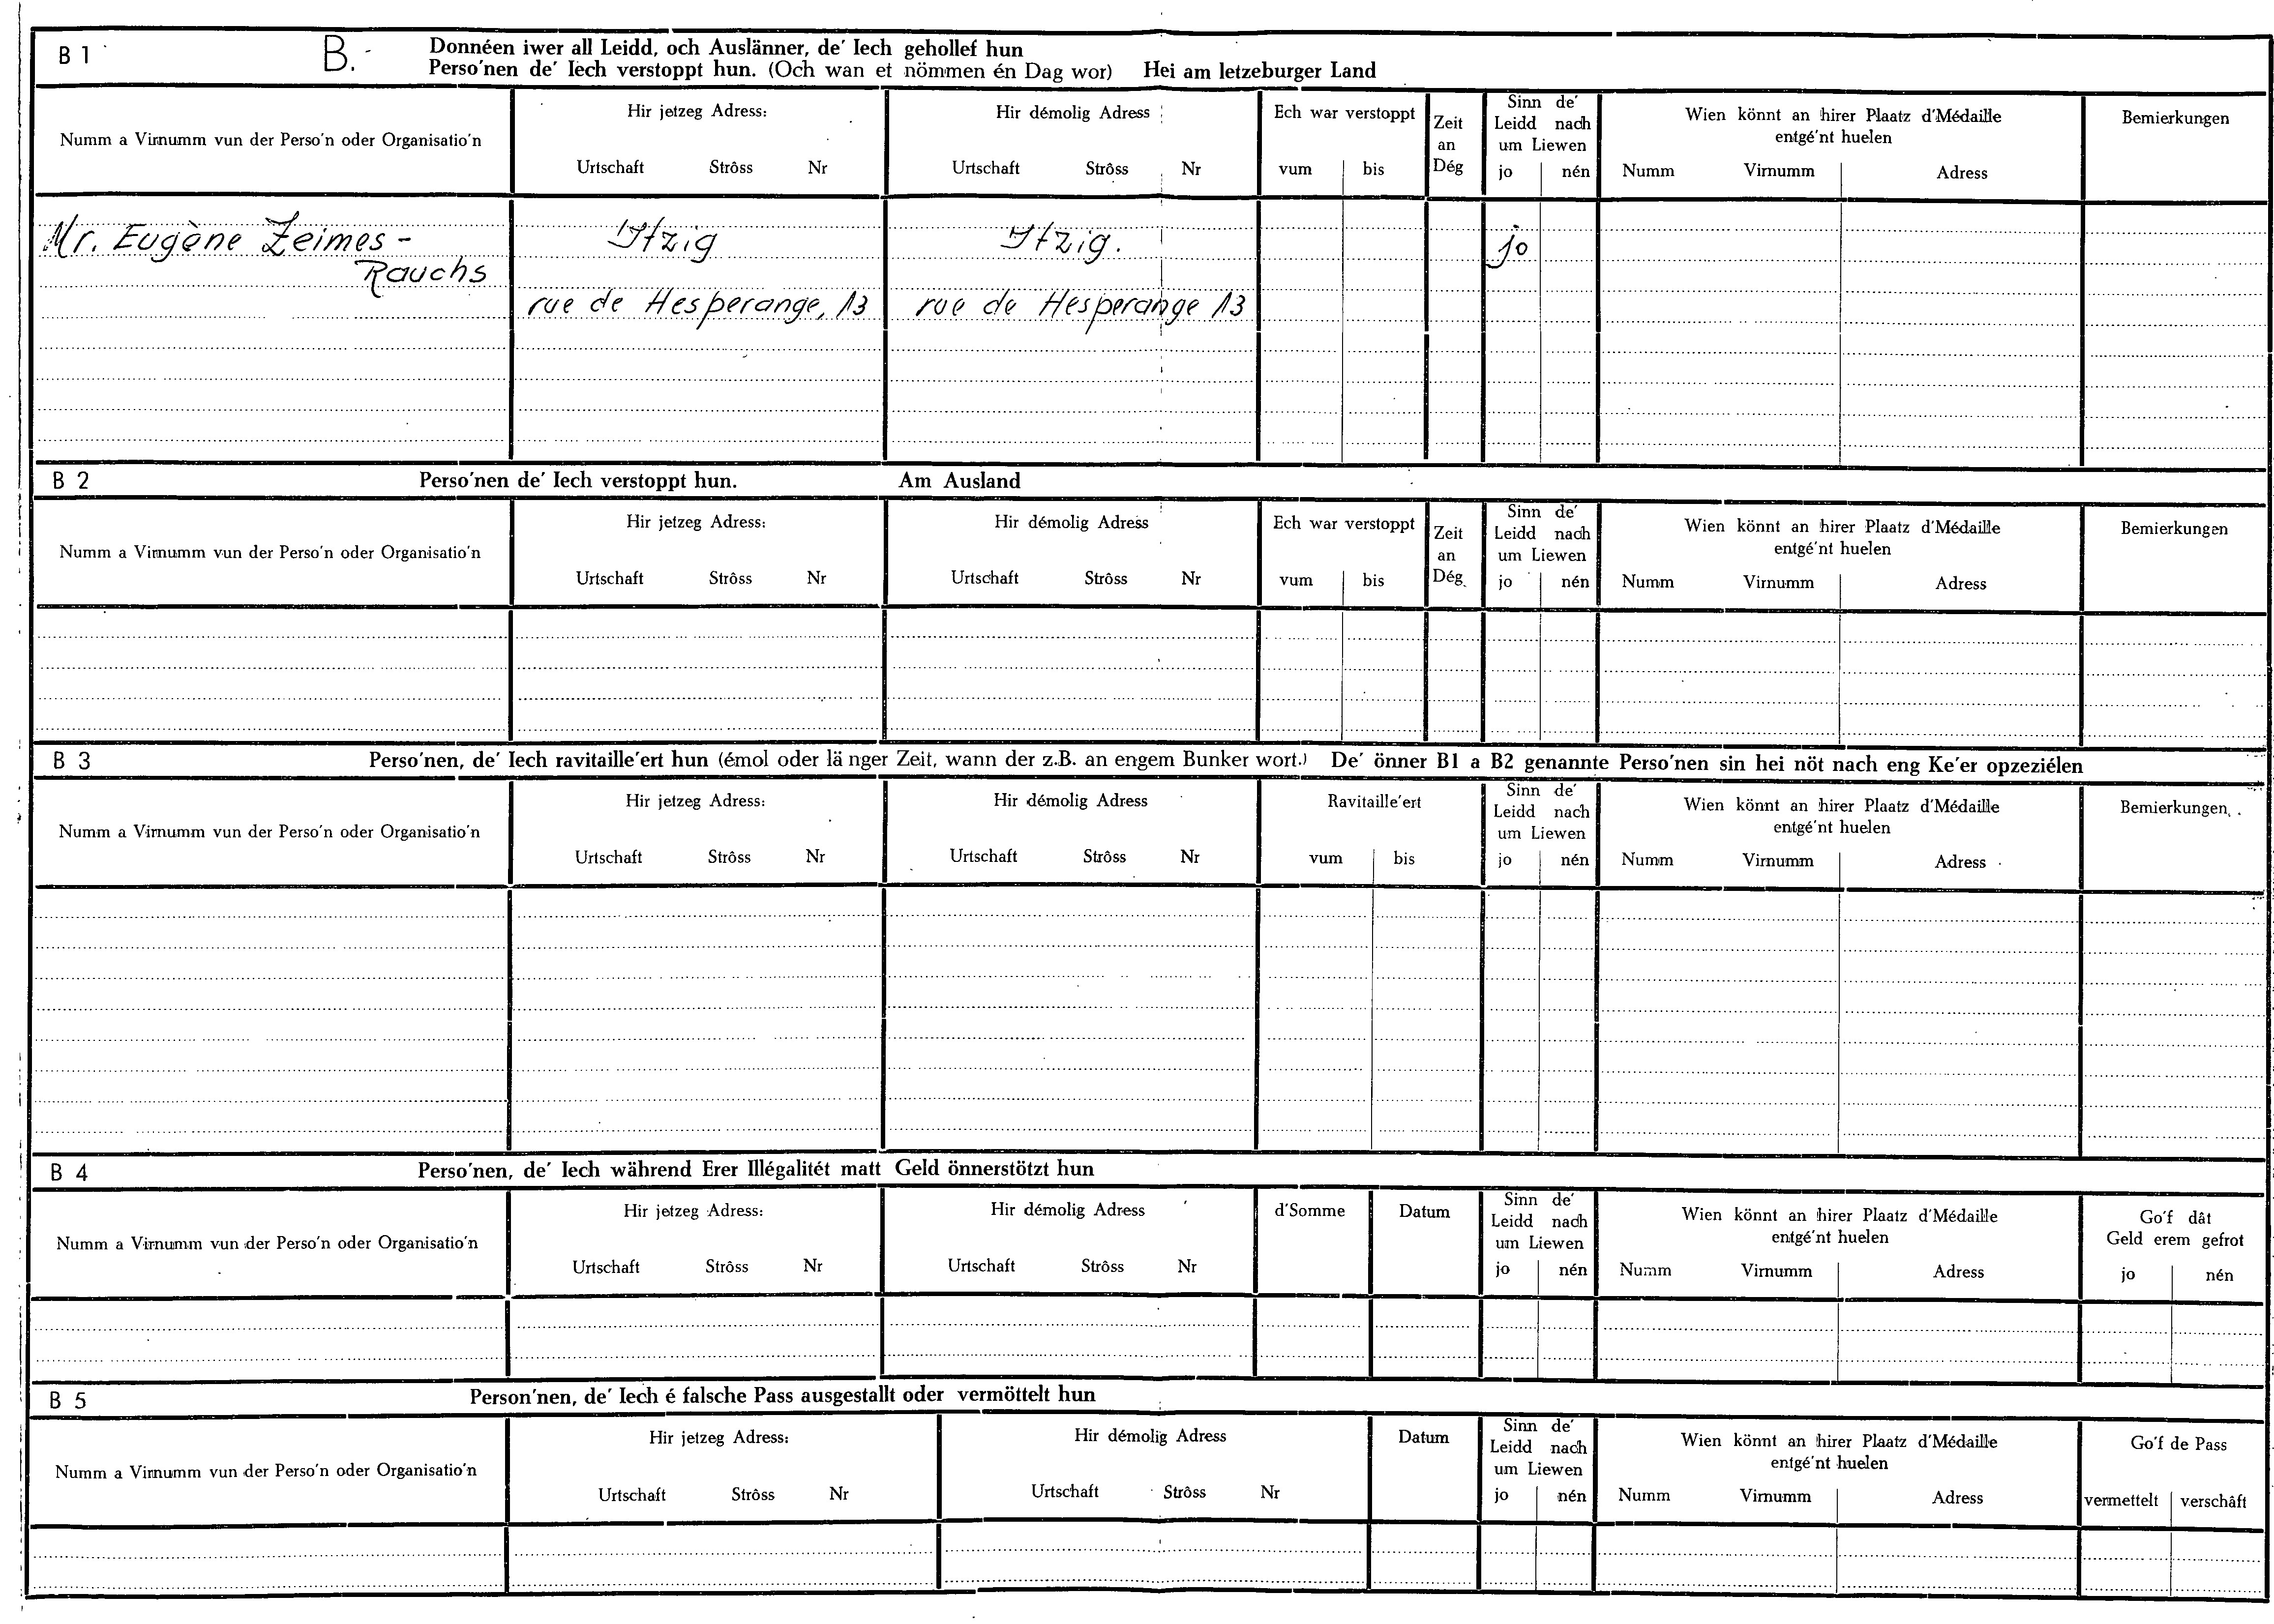 B 1 B.- Donnéen iwer all Leidd, och Auslänner, de' Iech gehollef hun
Perso'nen de' Iech verstoppt hun. (Och wan et nömmen én Dag wor) Hei am letzeburger Land
Numm a Virnumm vun der Perso'n oder Organisatio'n
Hir jetzeg Adress:
Urtschaft Strôss Nr
Hir démolig Adress
Urtschaft Strôss Nr
Ech war verstoppt
vum bis
Zeit
an
Dég
Sinn de'
Leidd nach
um Liewen
jo nén
Wien könnt an hirer Plaatz d'Médaille
entgé'nt huelen
Numm Virnumm Adress
Bemierkungen
Mr. Eugène Zeimes - Itzig Itzig. jo
Rauchs
rue de Hesperange, 13 rue de Hesperange 13
B 2 Perso'nen de' Iech verstoppt hun. Am Ausland
Numm a Virnumm vun der Perso'n oder Organisatio'n
Hir jetzeg Adress:
Urtschaft Strôss Nr
Hir démolig Adress
Urtschaft Strôss Nr
Ech war verstoppt
vum bis
Zeit
an
Dég
Sinn de'
Leidd nach
um Liewen
jo nén
Wien könnt an hirer Plaatz d'Médaille
entgé'nt huelen
Numm Virnumm Adress
Bemierkungen
B 3 Perso'nen, de' Iech ravitaille'ert hun (émol oder länger Zeit, wann der z.B. an engem Bunker wort.) De' önner B1 a B2 genannte Perso'nen sin hei nöt nach eng Ke'er opzeziélen
Numm a Virnumm vun der Perso'n oder Organisatio'n
Hir jetzeg Adress:
Urtschaft Strôss Nr
Hir démolig Adress
Urtschaft Strôss Nr
Ravitaille'ert
vum bis
Sinn de'
Leidd nach
um Liewen
jo nén
Wien könnt an hirer Plaatz d'Médaille
entgé'nt huelen
Numm Virnumm Adress
Bemierkungen
B 4 Perso'nen, de' Iech während Erer Illégalitét matt Geld önnerstötzt hun
Numm a Virnumm vun der Perso'n oder Organisatio'n
Hir jetzeg Adress:
Urtschaft Strôss Nr
Hir démolig Adress
Urtschaft Strôss Nr
d'Somme
Datum
Sinn de'
Leidd nach
um Liewen
jo nén
Wien könnt an hirer Plaatz d'Médaille
entgé'nt huelen
Numm Virnumm Adress
Go'f dât
Geld erem gefrot
jo nén
B 5 Person'nen, de' Iech é falsche Pass ausgestallt oder vermöttelt hun
Numm a Virnumm vun der Perso'n oder Organisatio'n
Hir jetzeg Adress:
Urtschaft Strôss Nr
Hir démolig Adress
Urtschaft Strôss Nr
Datum
Sinn de'
Leidd nach
um Liewen
jo nén
Wien könnt an hirer Plaatz d'Médaille
entgé'nt huelen
Numm Virnumm Adress
Go'f de Pass
vermettelt verschâft